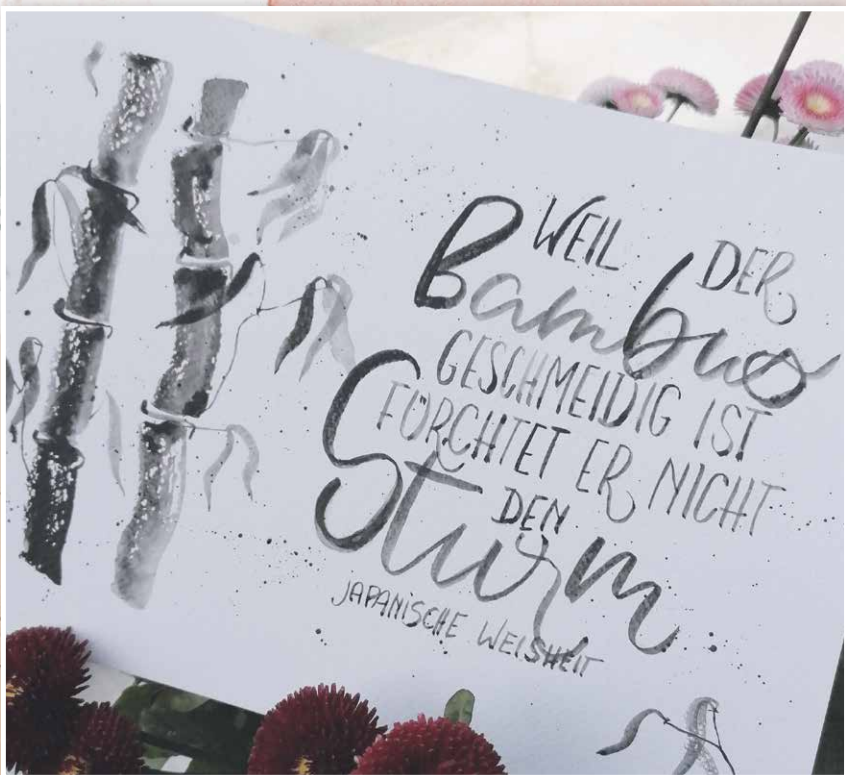 WEIL DER
Bambus
GESCHMEIDIG IST
FÜRCHTET ER NICHT
DEN
Sturm
JAPANISCHE WEISHEIT